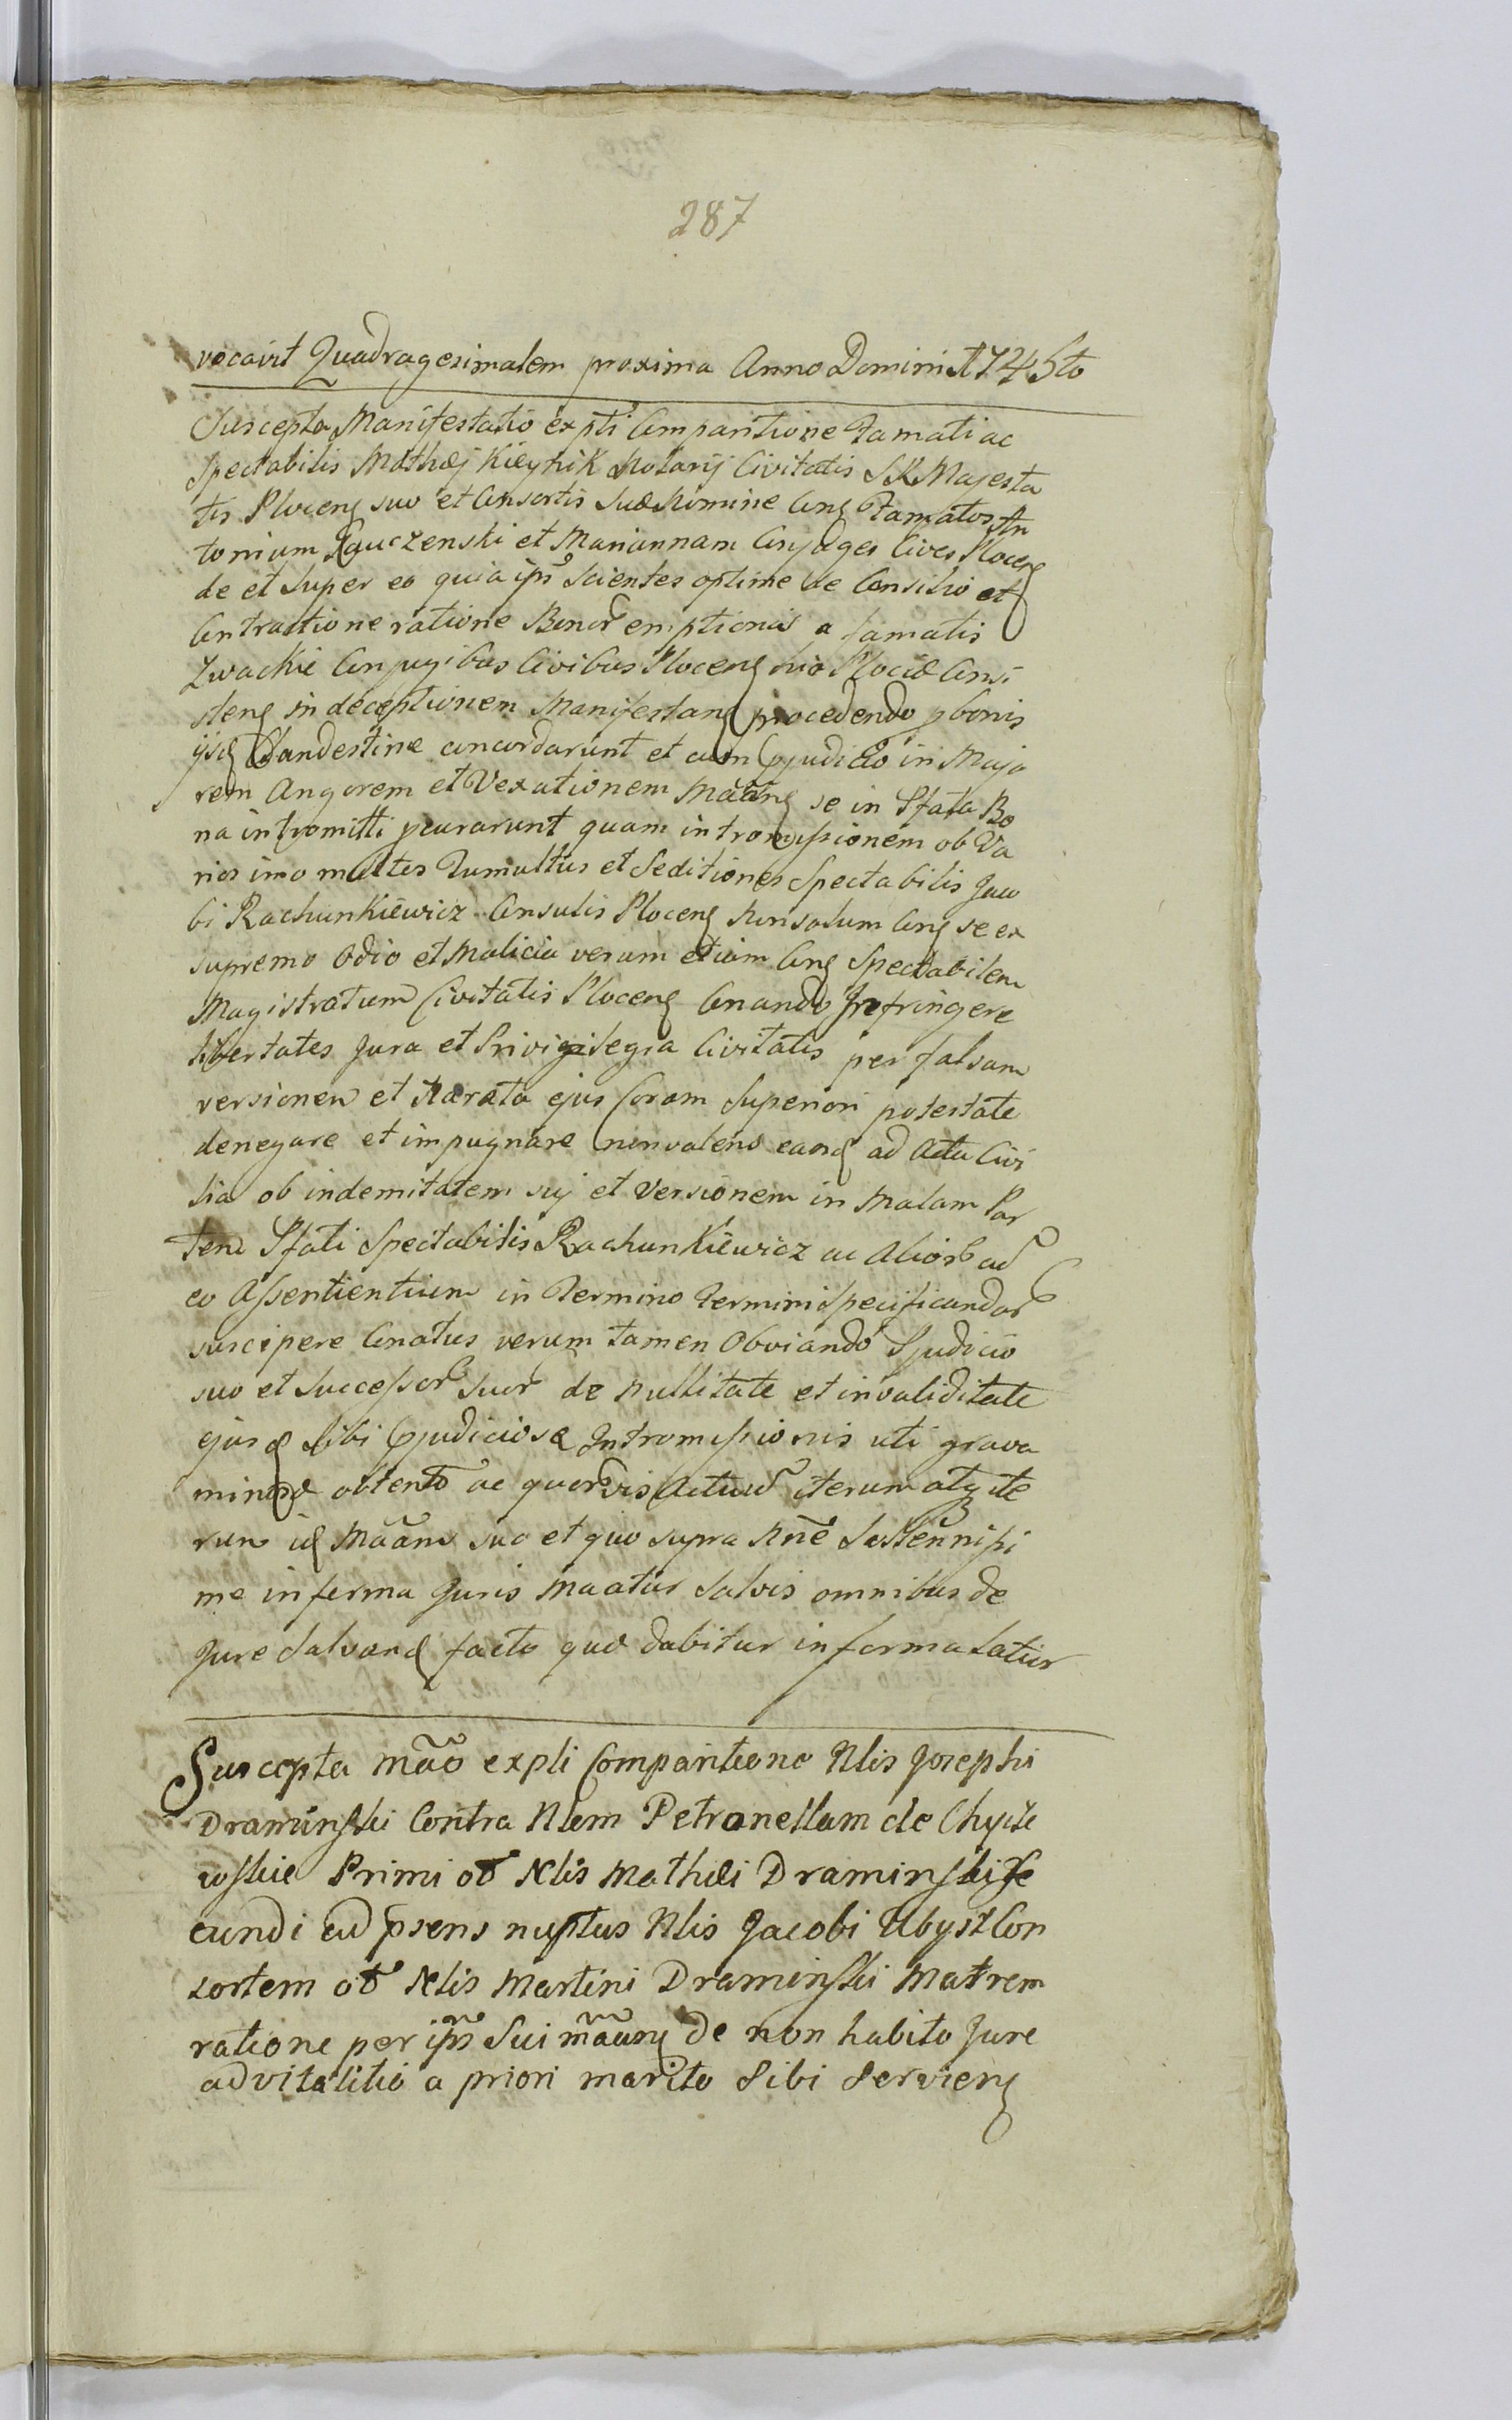 287
vocavit Quadragesimalem proxima Anno Domini 1745to
Suscepta Manifestatio ex pti Comparitione Famati ac
Spectabilis Mathæj Kieynik Notarij Civitatis SR Majesta
tis Plocen suo et Consortis suæ Nomine Con Famatos An
tonium Rauczenski et Mariannam Conjuges Cives Plocen
de et super eo quia ips Scientes optime de Consilio et
Contractione ratione Bonor emptionis a famatis
Zwackie Conjugibus Civibus Plocen hic Plociæ Consi
sten in deceptionem Manifestan procedendo p bonis
ijsd Clandestine concordarunt et cum Ppjudicio in Majo
rem Angorem et Vexationem Mããn se in Pfata Bo
na intromitti pcurarunt quam intromissionem ob Va
rios imo multos Tumultus et Seditiones Spectabilis Jaco
bi Rachunkiewicz Consulis Plocen Nonsolum Con se ex
supremo Odio et Malicia verum etiam Con Spectabilem
Magistratum Civitatis Plocen Conando Jnfringere
libertates Jura et Privigilegia Civitatis per falsam
versionem et Narata ejus Coram Superiori potestate
denegare et impugnare nonvalens eand ad Acta Civi
lia ob indemitatem sij et Versionem in Malam Par
tem Pfati Spectabilis Rachunkiewicz ac Alior ad
eo Assentientium in Termino Termini specificandor
suscipere Conatus verum tamen Obviando Pjudicio
suo et successor suor de Nullitate et invaliditate
ejusd sibi Ppjudiciosæ Intromissionis uti grava
minose obtento ac quorvis Actuum iterum atq ite
rum id Mããns suo et quo supra Nñe Sollennissi
me in forma Juris Maatur Salvis omnibus de
Jure Salvand facto quo dabitur in forma Latior
Suscepta Mão expli Comparitione Nlis Josephi
Draminski Contra Nlem Petronellam de Chycze
wskie Primi oð Nlis Mathæi Draminski se
cundi ad psens nuptus Nlis Jacobi Ubysz Con
sortem oð Nlis Martini Draminski Matrem
ratione per ips Sui mããn de non habito Jure
advitalitio a priori marito Sibi Servien